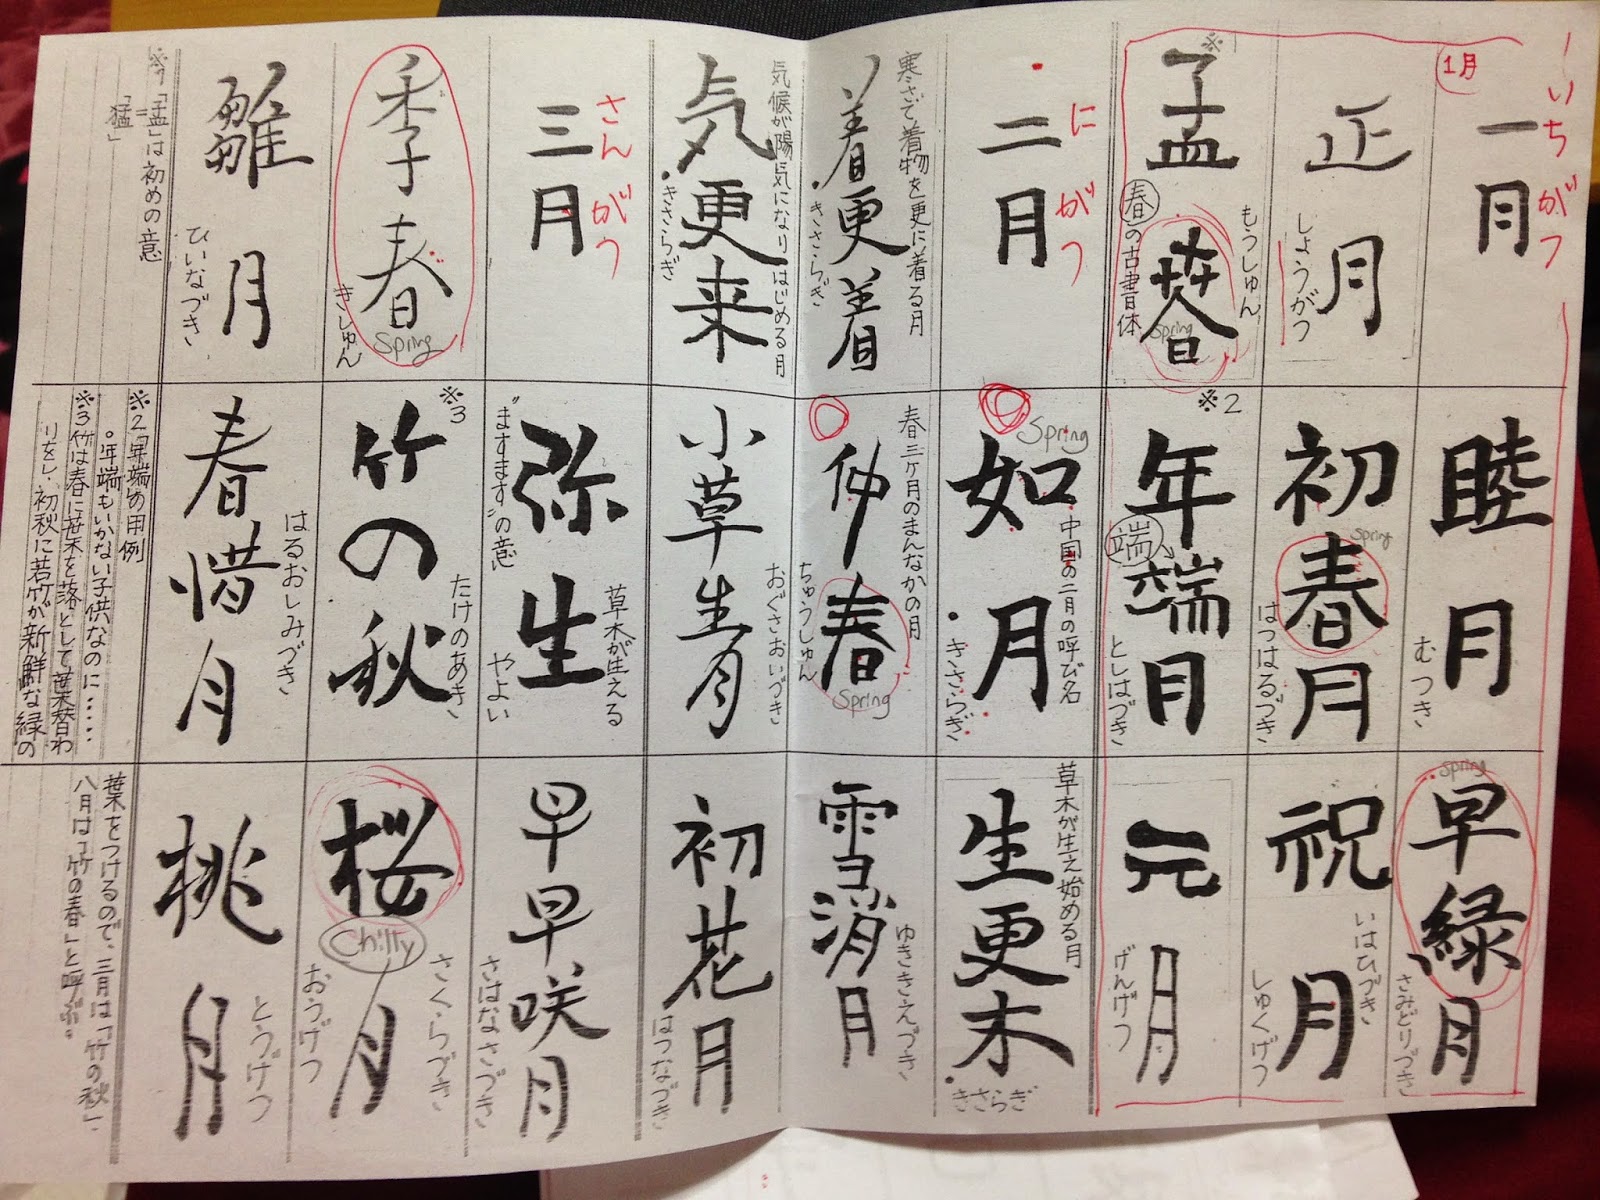 いちがつ
1月
一月
正月
しょうがつ
※1
孟
春
もうしゅん
Spring
「春」の古書体
にがつ
二月
寒さで着物を更に着る月
着更着
きさらぎ
気候が陽気になりはじめる月
気更来
きさらぎ
さんがつ
三月
季春
きしゅん
Spring
雛月
ひいなづき
※1「孟」は初めの意
=
「猛」
睦月
むつき
初春月
Spring
はつはるづき
※2
年端月
端
としはづき
Spring
如月
中国の二月の呼び名
きさらぎ
春三ヶ月のまんなかの月
仲春
ちゅうしゅん
Spring
小草生月
おぐさおいづき
弥生
"ますます"の意
草木が生える
やよい
※3
竹の秋
たけのあき
春惜月
はるおしみづき
※2「年端」の用例
。年端もいかない子供なのに……
※3竹は春に葉を落として葉替わ
りをし、初秋に若竹が新鮮な緑の
Spring
早緑月
さみどりづき
祝月
いはひづき
しゅくげつ
元月
げんげつ
草木が生え始める月
生更木
きさらぎ
雪消月
ゆききえづき
初花月
はつなづき
早早咲月
さはなさづき
桜月
Chilly
さくらづき
おうげつ
桃月
とうげつ
葉をつけるので、三月は「竹の秋」、
八月は「竹の春」と呼ぶ。